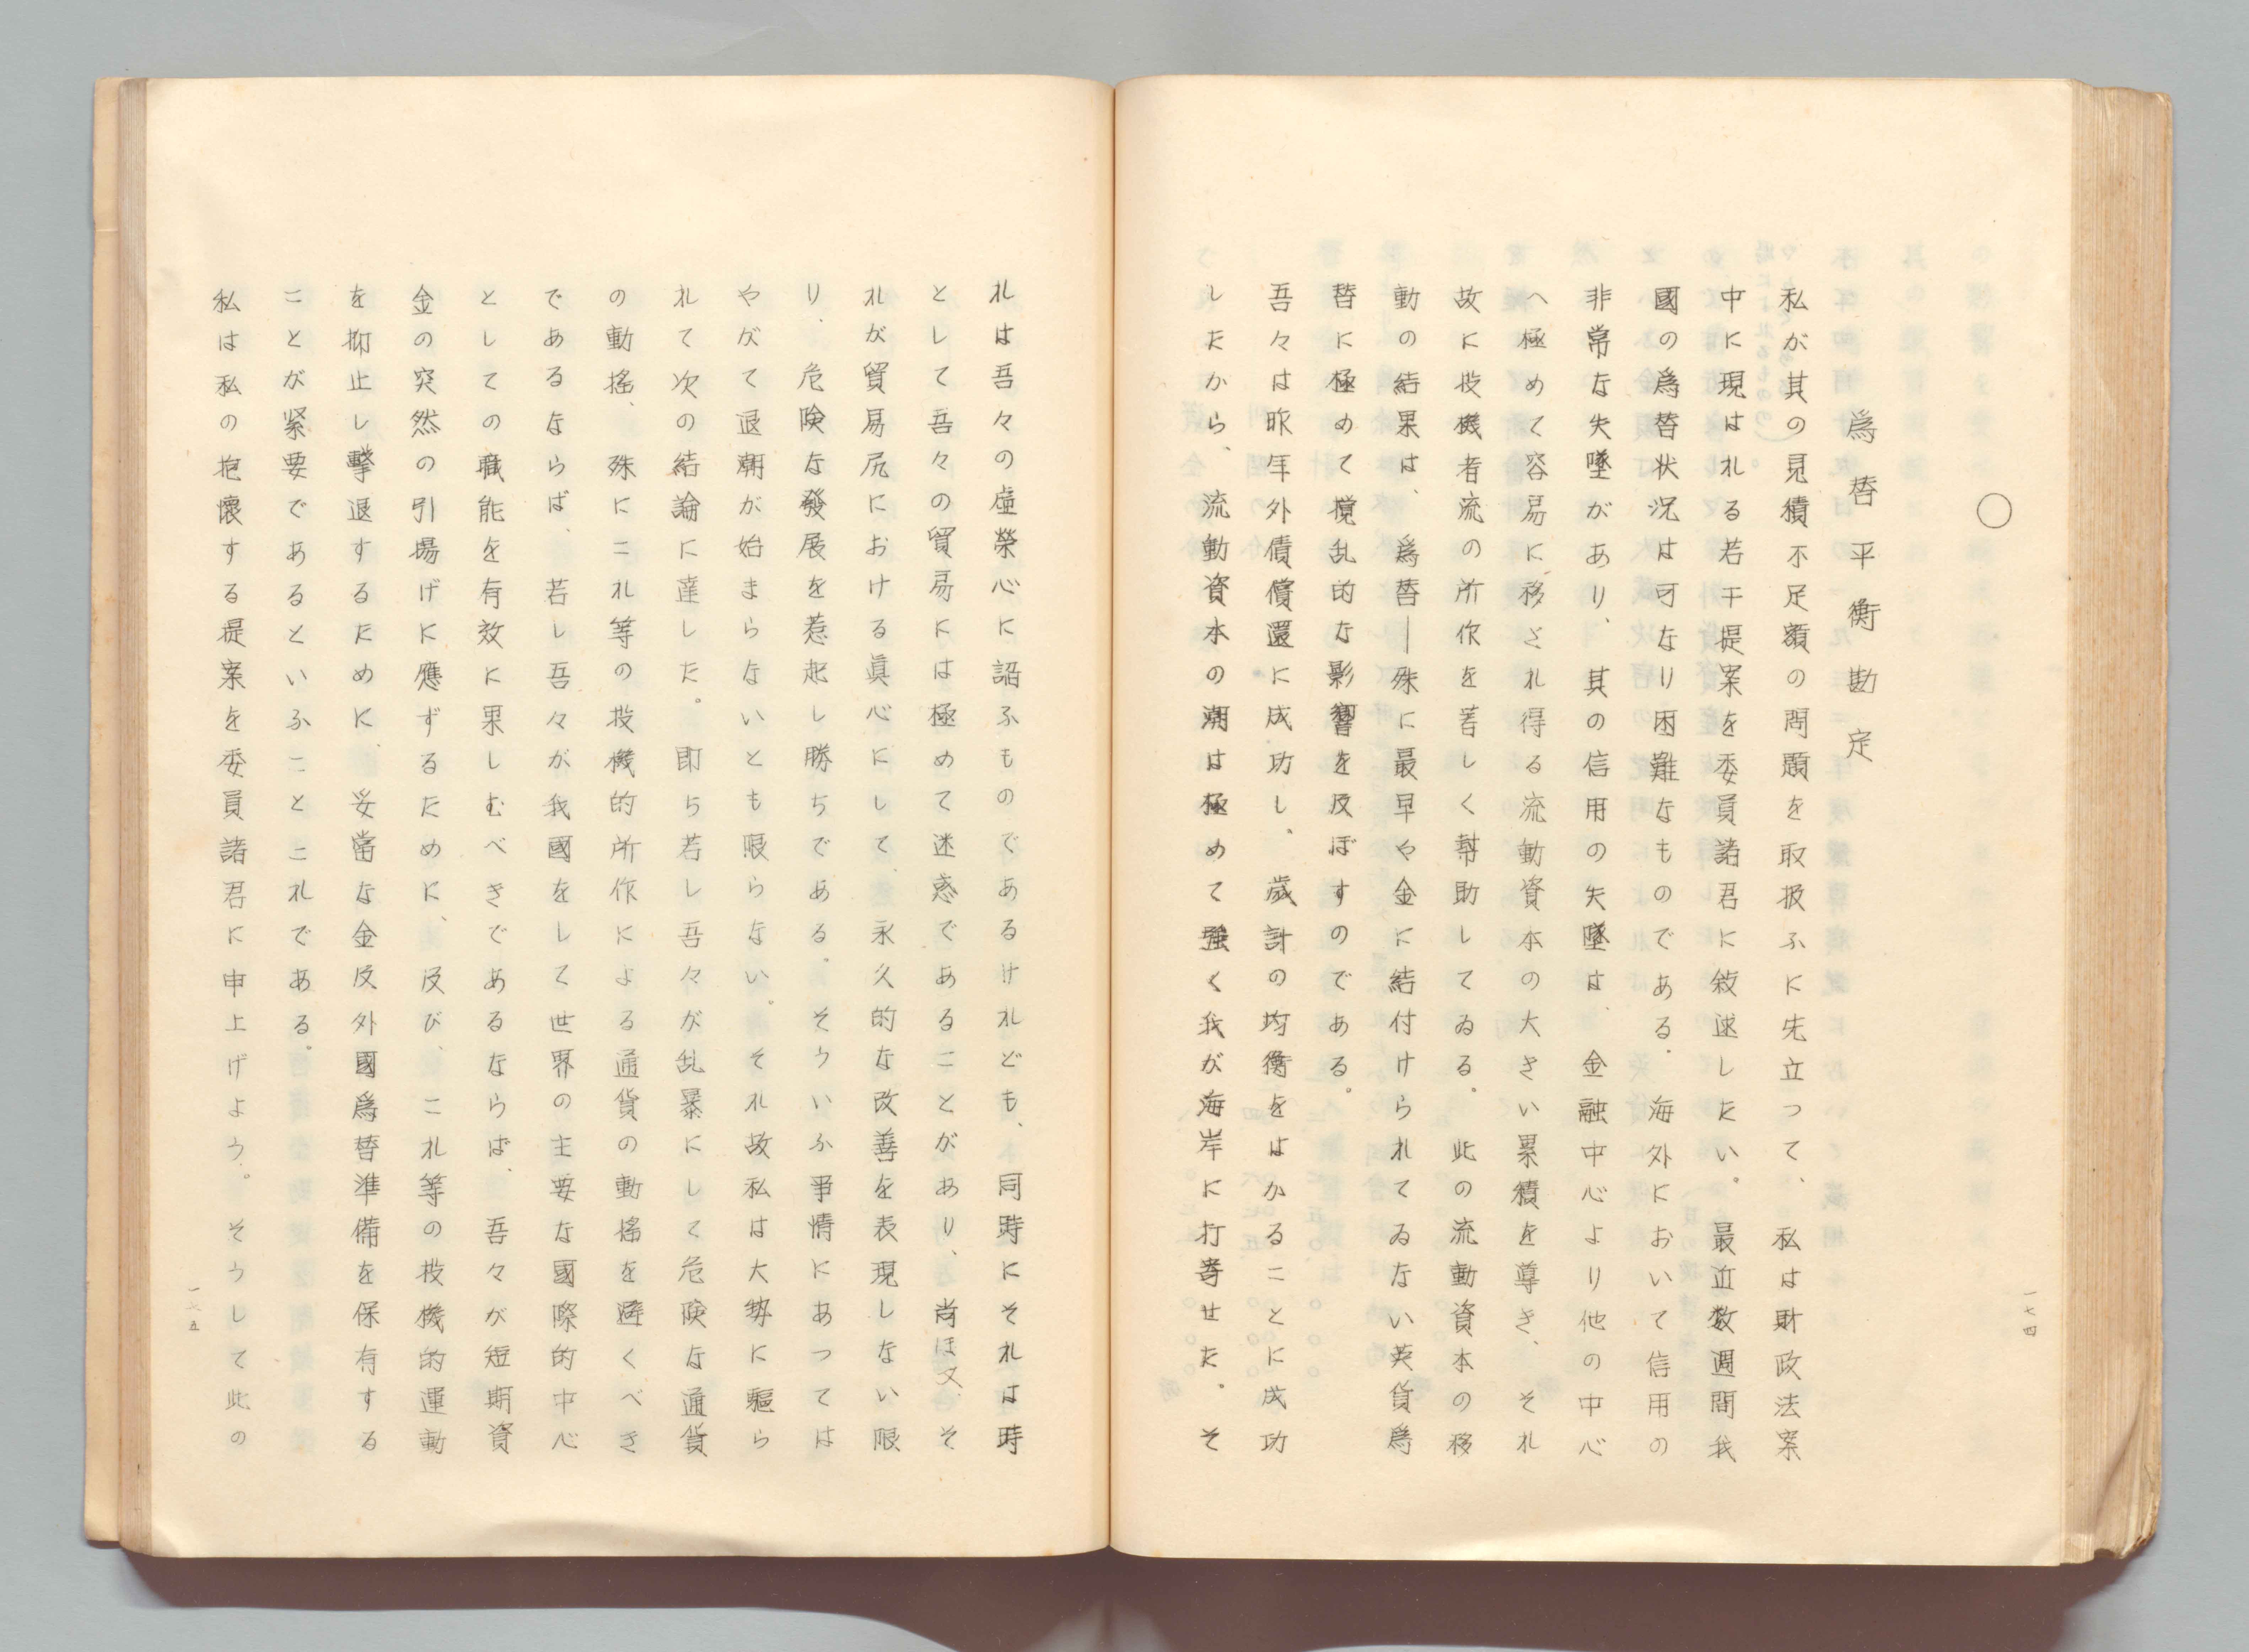 ○
爲替平衡勘定
私が其の見積不足額の問題を取扱ふに先立つて、私は財政法案
中に現はれる若干提案を委員諸君に敍述したい。最近数週間我
國の爲替状況は可なり困難なものである。海外において信用の
非常な失墜があり、其の信用の失墜は、金融中心より他の中心
へ極めて容易に移され得る流動資本の大きい累積を導き、それ
故に投機者流の所作を著しく幇助してゐる。此の流動資本の移
動の結果は、爲替―殊に最早や金に結付けられてゐない英貨爲
替に極めて撹乱的な影響を及ぼすのである。
吾々は昨年外債償還に成功し、歳計の均衡をはかることに成功
したから、流動資本の潮は極めて強く我が海岸に打寄せた。そ
一七四
れは吾々の虚榮心に諂ふものであるけれども、同時にそれは時
として吾々の貿易には極めて迷惑であることがあり、尚ほ又、そ
れが貿易尻における眞心にして、永久的な改善を表現しない限
り、危険な發展を惹起し勝ちである。そういふ事情にあつては
やがて退潮が始まらないとも限らない。それ故私は大勢に驅ら
れて次の結論に達した。即ち若し吾々が乱暴にして危険な通貨
の動搖、殊にこれ等の投機的所作による通貨の動搖を避くべき
であるならば、若し吾々が我國をして世界の主要な國際的中心
としての職能を有效に果しむべきであるならば、吾々が短期資
金の突然の引揚げに應ずるために、及び、これ等の投機的運動
を抑止し撃退するために、妥當な金及外國爲替準備を保有する
ことが緊要であるといふことこれである。
私は私の抱懷する提案を委員諸君に申上げよう。そうして此の
一七五